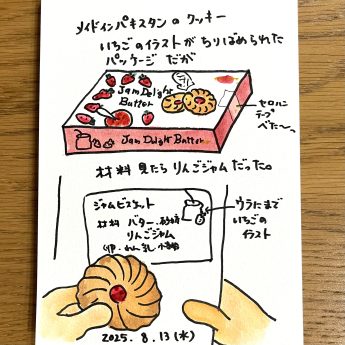 メイドインパキスタンの クッキー
いちごのイラストが ちりばめられた
パッケージ だが
Jam Delight
Butter
Jam Delight
Butter
Jam Delight Butter
セロハン
テープ
べた〜っ
材料 見たら りんごジャムだった。
ジャムビスケット
材料 バター、砂糖
りんごジャム
ウラにまで
いちごの
イラスト
2025. 8. 13 (水)